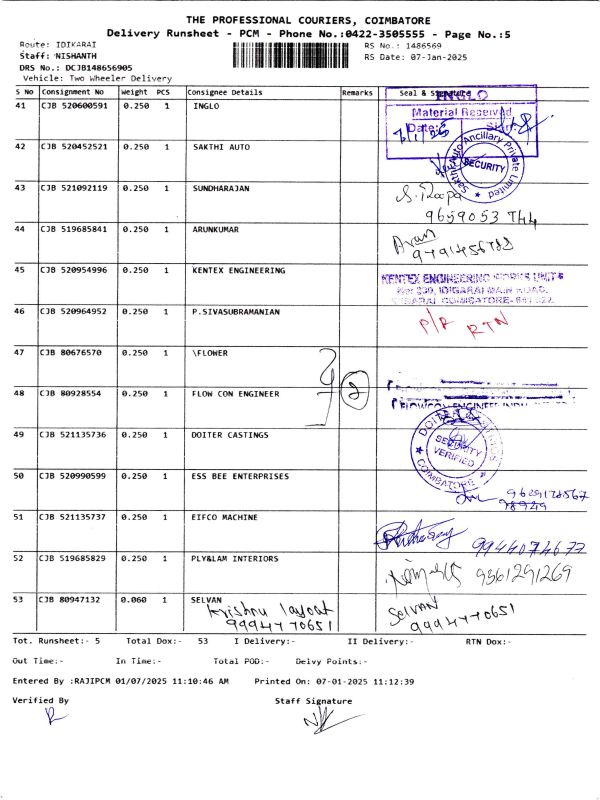 THE PROFESSIONAL COURIERS, COIMBATORE
Delivery Runsheet - PCM - Phone No.:0422-3505555 - Page No.:5
Route: IDIKARAI RS No.: 1486569
Staff: NISHANTH RS Date: 07-Jan-2025
DRS No.: DCJB148656905
Vehicle: Two Wheeler Delivery
S No Consignment No Weight PCS Consignee Details Remarks Seal & Signature
INGLO
41 CJB 520600591 0.250 1 INGLO Material Received
Date:
42 CJB 520452521 0.250 1 SAKTHI AUTO Sakthi Auto Ancillary Private Limited SECURITY
43 CJB 521092119 0.250 1 SUNDHARAJAN
9659053744
44 CJB 519685841 0.250 1 ARUNKUMAR
45 CJB 520954996 0.250 1 KENTEX ENGINEERING KENTEX ENGINEERING WORKS UNIT
IDIGARAI MAIN ROAD,
46 CJB 520964952 0.250 1 P.SIVASUBRAMANIAN P/R RTN
47 CJB 80676570 0.250 1 \FLOWER
48 CJB 80928554 0.250 1 FLOW CON ENGINEER 2
49 CJB 521135736 0.250 1 DOITER CASTINGS DOITER CASTINGS SECURITY VERIFIED COIMBATORE
50 CJB 520990599 0.250 1 ESS BEE ENTERPRISES
51 CJB 521135737 0.250 1 EIFCO MACHINE 9944074677
52 CJB 519685829 0.250 1 PLY&LAM INTERIORS 9361291269
53 CJB 80947132 0.060 1 SELVAN SELVAN
Krishnu layout 9994770651
9994770651
Tot. Runsheet:- 5 Total Dox:- 53 I Delivery:- II Delivery:- RTN Dox:-
Out Time:- In Time:- Total POD:- Delvy Points:-
Entered By :RAJIPCM 01/07/2025 11:10:46 AM Printed On: 07-01-2025 11:12:39
Verified By Staff Signature